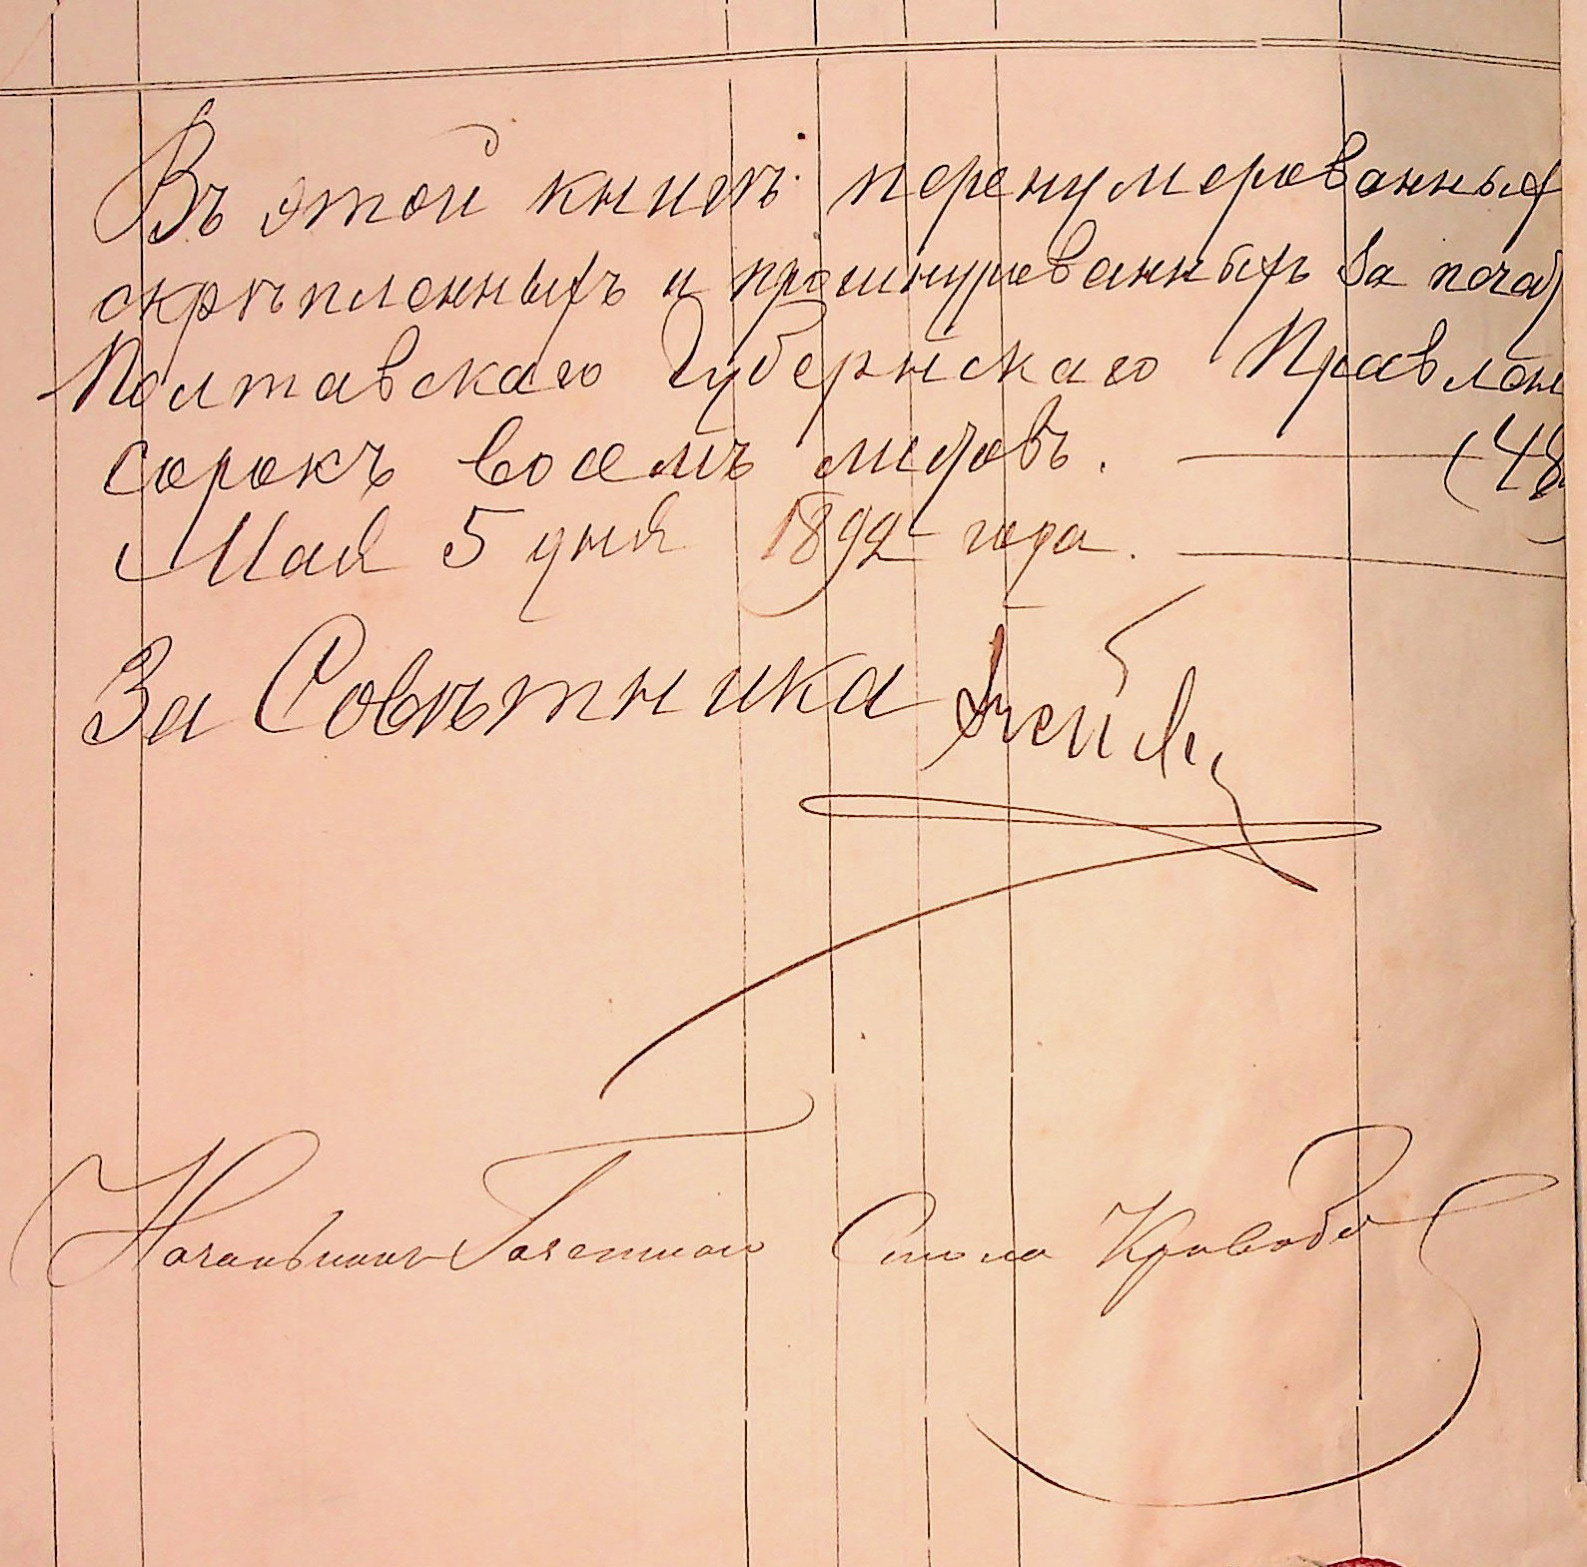 Въ этой книгѣ перенумерованных
скрѣпленныхъ и прошнурованныхъ за печат
Полтавскаго Губернскаго Правлен
сорокъ восемъ листовъ. (48
Мая 5 дня 1892 года.
За Совѣтника
Начальникъ Газетнаго Стола